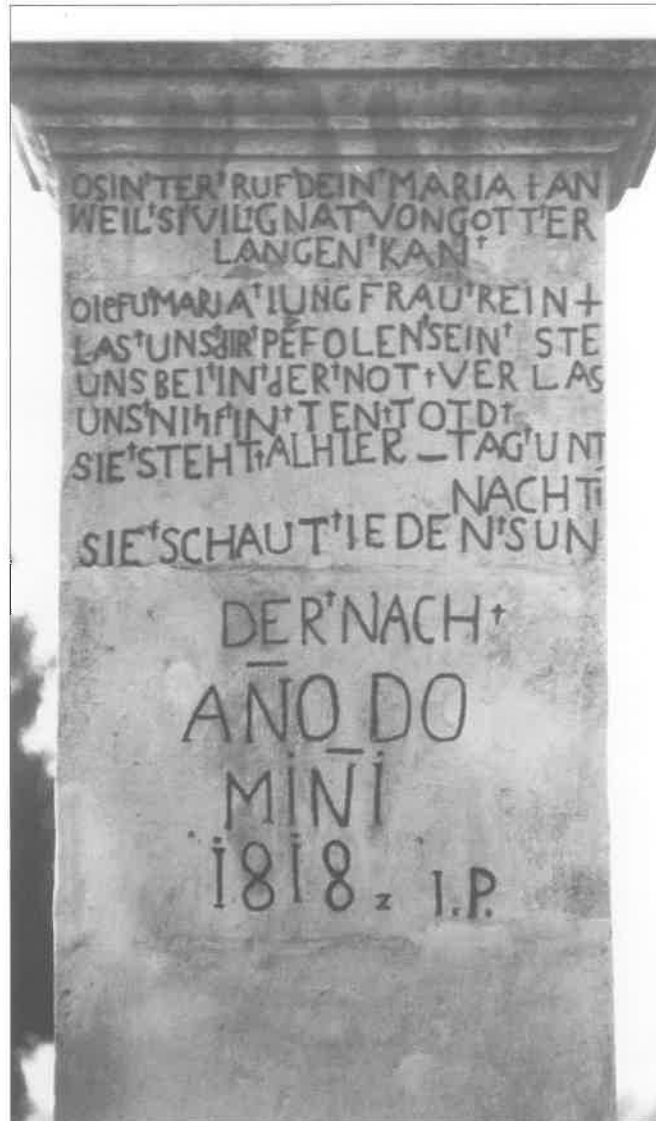 OSIN†TER†RUF†DEIN†MARIA†AN
WEIL†SI†VIL†GNAT†VON GOTT†ER
LANGEN†KAN†
MARIA†IUNGFRAU†REIN†
LAS†UNS†dIR†PEFOLEN†SEIN† STE
UNS BEI†IN†dER†NOT†VER LAS
UNS† IN†TEN†TOTD†
SIE†STEHT†ALHIER – TAG†UNT
NACHT†
SIE†SCHAUT†IEDEN†SUN
DER†NACH†
AN̄O DO
MIN̄I
1818 z I.P.